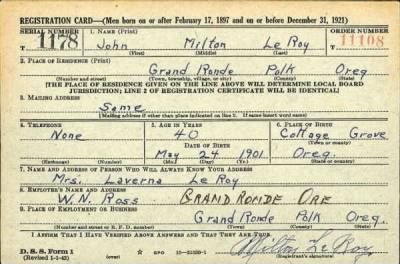 REGISTRATION CARD—(Men born on or after February 17, 1897 and on or before December 31, 1921)
SERIAL NUMBER 1. NAME (Print) ORDER NUMBER
T 1178 John Milton Le Roy 11108
(First) (Middle) (Last)
2. PLACE OF RESIDENCE (Print)
Grand Ronde Polk Oreg
(Number and street) (Town, township, village, or city) (County) (State)
[THE PLACE OF RESIDENCE GIVEN ON THE LINE ABOVE WILL DETERMINE LOCAL BOARD JURISDICTION; LINE 2 OF REGISTRATION CERTIFICATE WILL BE IDENTICAL]
3. MAILING ADDRESS
Same
[Mailing address if other than place indicated on line 2. If same insert word same]
4. TELEPHONE 5. AGE IN YEARS 6. PLACE OF BIRTH
None 40 Cottage Grove
DATE OF BIRTH (Town or county)
May 24 1901 Oreg.
(Exchange) (Number) (Mo.) (Day) (Yr.) (State or country)
7. NAME AND ADDRESS OF PERSON WHO WILL ALWAYS KNOW YOUR ADDRESS
Mrs. Laverna Le Roy
8. EMPLOYER'S NAME AND ADDRESS
W. N. Ross GRAND RONDE ORE
9. PLACE OF EMPLOYMENT OR BUSINESS
Grand Ronde Polk Oreg.
(Number and street or R. F. D. number) (Town) (County) (State)
I AFFIRM THAT I HAVE VERIFIED ABOVE ANSWERS AND THAT THEY ARE TRUE.
D. S. S. Form 1 GPO
(Revised 1-1-42) Milton Le Roy
(Registrant's signature)